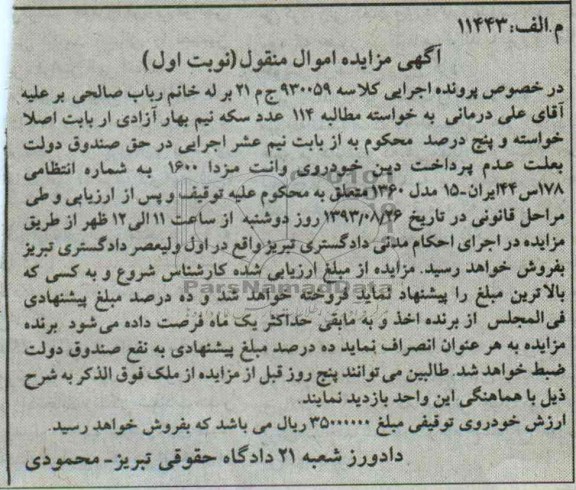 م.الف: ۱۱۴۴۳
آگهی مزایده اموال منقول (نوبت اول)
در خصوص پرونده اجرایی کلاسه ۹۳۰۰۵۹ ج م ۲۱ بر له خانم رباب صالحی بر علیه
آقای علی درمانی به خواسته مطالبه ۱۱۴ عدد سکه نیم بهار آزادی از بابت اصلا
خواسته و پنج درصد محکوم به از بابت نیم عشر اجرایی در حق صندوق دولت
بعلت عدم پرداخت دین خودروی وانت مزدا ۱۶۰۰ به شماره انتظامی
۱۷۸س۴۴ایران-۱۵ مدل ۱۳۶۰متعلق به محکوم علیه توقیف و پس از ارزیابی و طی
مراحل قانونی در تاریخ ۱۳۹۳/۰۸/۲۶ روز دوشنبه از ساعت ۱۱ الی ۱۲ ظهر از طریق
مزایده در اجرای احکام مدنی دادگستری تبریز واقع در اول ولیعصر دادگستری تبریز
بفروش خواهد رسید. مزایده از مبلغ ارزیابی شده کارشناس شروع و به کسی که
بالاترین مبلغ را پیشنهاد نماید فروخته خواهد شد و ده درصد مبلغ پیشنهادی
فی‌المجلس از برنده اخذ و به مابقی حداکثر یک ماه فرصت داده می‌شود برنده
مزایده به هر عنوان انصراف نماید ده درصد مبلغ پیشنهادی به نفع صندوق دولت
ضبط خواهد شد. طالبین می‌توانند پنج روز قبل از مزایده از ملک فوق الذکر به شرح
ذیل با هماهنگی این واحد بازدید نمایند.
ارزش خودروی توقیفی مبلغ ۳۵۰۰۰۰۰۰ ریال می باشد که بفروش خواهد رسید.
دادورز شعبه ۲۱ دادگاه حقوقی تبریز- محمودی
ParsNamadData